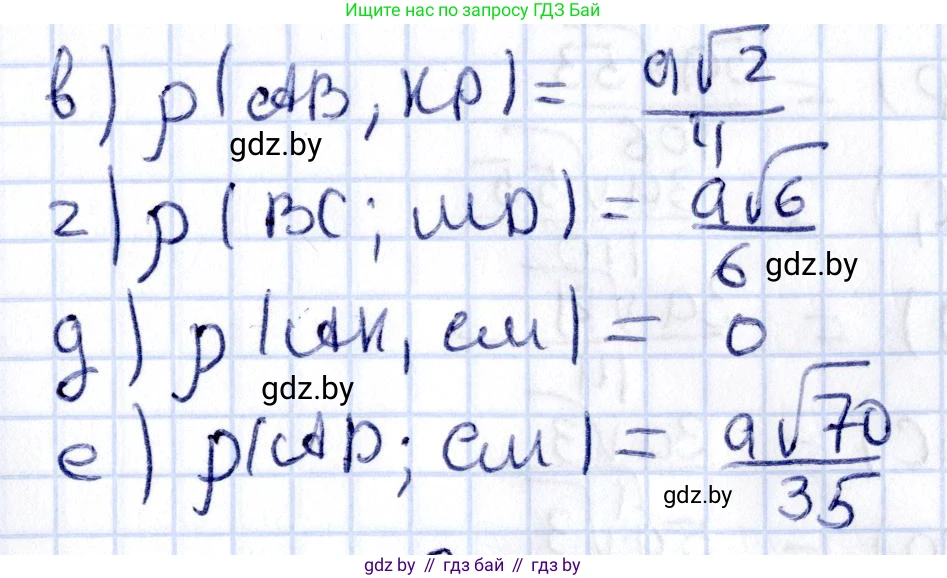 Ищите нас по запросу ГДЗ Бай
в) ρ(AB, KP) = a√2/4
gdz.by
г) ρ(BC; MD) = a√6/6
gdz.by
д) ρ(AK, CM) = 0
gdz.by
е) ρ(AD; CM) = a√70/35
gdz.by
gdz.by // гдз бай // gdz.by